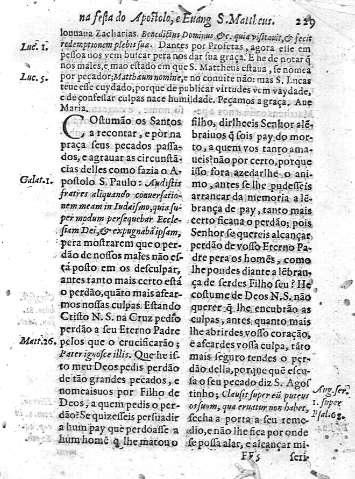 na festa do Apostolo, e Euang S. Mattheus. 229
louuaua Zacharias. Benedictus Dominus &c. quia visitauit, & fecit
Luc. 1. redemptionem plebis sua. Dantes por Profetas, agora elle em
pessoa nos vem buscar pera nos dar sua graça. E he de notar q̃
nos males, e mao estado em que S. Mattheus estaua, se nomea
Luc. 5. por pecador; Matthæum nomine, e no conuite não: mas S. Lucas
teue esse cuydado, porque de publicar virtudes vem vaydade,
e de confessar culpas nace humildade. Peçamos a graça. Aue
Maria.
COstumão os Santos
a recontar, e pòr na
praça seus pecados passa-
dos, e agrauar as circunstã-
cias delles como fazia o A-
postolo S. Paulo: Audistis
Galat. 1. fratres aliquando conuersatio-
nem meam in Iudaismo, quia su-
per modum persequebar Eccle-
siam Dei, & expugnabã ipsam,
pera mostrarem que o per-
dão de nossos males não es-
tá posto em os desculpar,
antes tanto mais certo está
o perdão, quãto mais afear-
mos nossas culpas. Estando
Cristo N. S. na Cruz pedio
perdão a seu Eterno Padre
Matt. 26. pelos que o crucificarão;
Pater ignosce illis. Que he is-
to meu Deos pedis perdão
de tão grandes pecados, e
nomeaisuos por Filho de
Deos, a quem pedis o per-
dão? Se quizesseis persuadir
a hum pay que perdoasse a
hum homẽ q̃ lhe matou o
filho, dirlheeis Senhor alẽ-
braiuos q̃ sois pay do mor-
to, a quem vos tanto ama-
ueis? não por certo, porque
isso fora azedarlhe o ani-
mo, antes se lhe pudesseis
arrancar da memoria a lẽ-
brança de pay, tanto mais
certo ficaua o perdão; pois
Senhor se quereis alcançar
perdão de vosso Eterno Pa-
dre pera os homẽs, como
lhe poudes diante a lẽbrã-
ça de serdes Filho seu? He
costume de Deos N. S. não
querer q̃ lhe encubrão as
culpas, antes quanto mais
lhe abrirdes vosso coração,
e afeardes vossa culpa, tãto
mais seguro tendes o per-
dão della, porque quẽ escu-
sa o seu pecado diz S. Agos-
Aug. ser. tinho; Clausit super eũ puteus
1. super os suum, qua eruatur non habet,
Psal. 68. secha a porta a seu reme-
dio, e não lhe fica por onde
se possa alar, e alcançar mi-
Ff 5 seri-